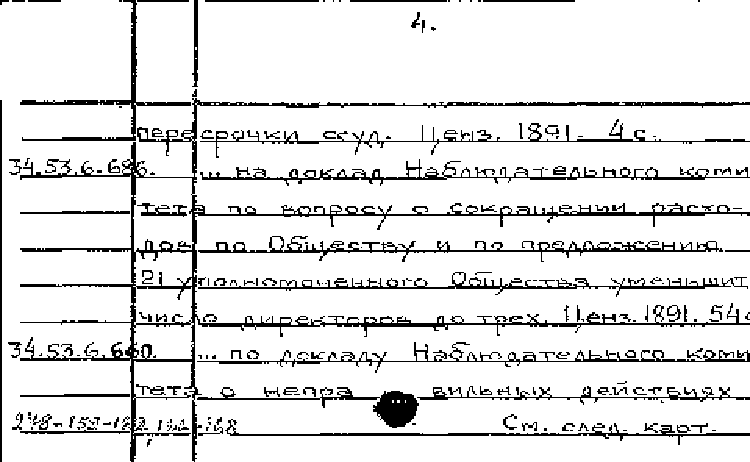 4.
пересрочки ссуд. Ценз. 1891. 4с.
34.53.6.686. ... на доклад Наблюдательного коми
тета по вопросу о сокращении расхо-
дов по Обществу и по предложению
21 уполномоченного Общества уменьшит
число директоров до трех. Ценз. 1891. 54с
34.53.6.660. ... по докладу Наблюдательного коми
тета о непра вильных действиях
См. след. карт.